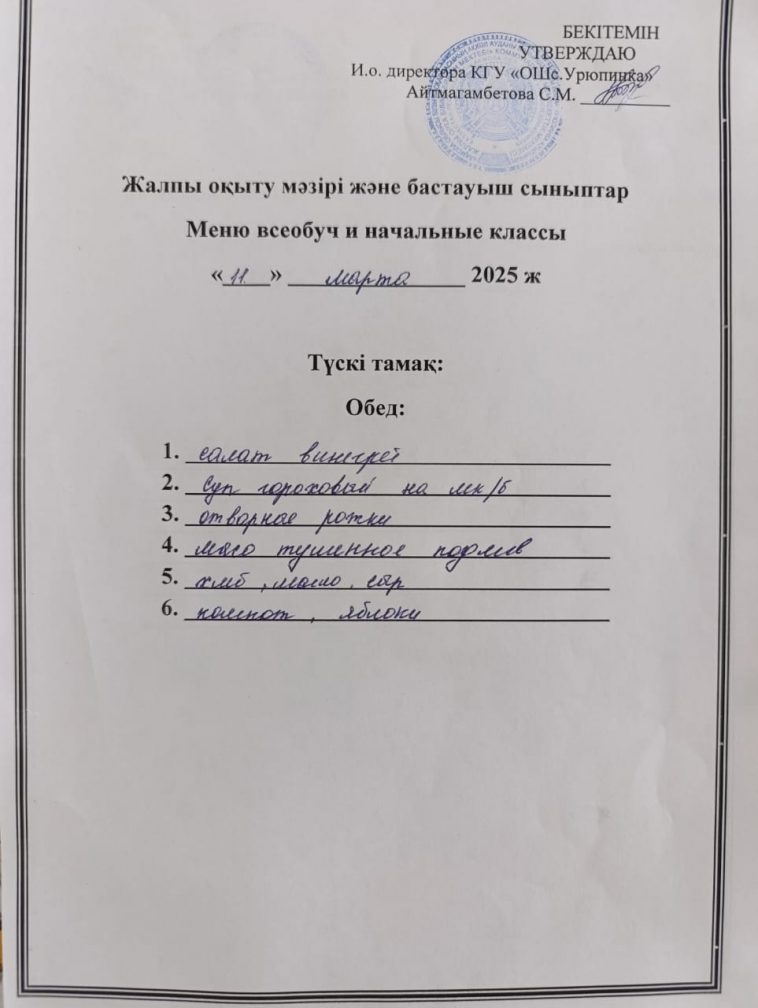 БЕКІТЕМІН
УТВЕРЖДАЮ
И.о. директора КГУ «ОШс.Урюпинка»
Айтмагамбетова С.М.
Жалпы оқыту мәзірі және бастауыш сыныптар
Меню всеобуч и начальные классы
«11» марта 2025 ж
Түскі тамақ:
Обед:
1. салат винегрет
2. Суп гороховый на мк/б
3. отворное рожки
4. мясо тушенное подлив
5. хлеб, масло, сыр
6. компот, яблоки